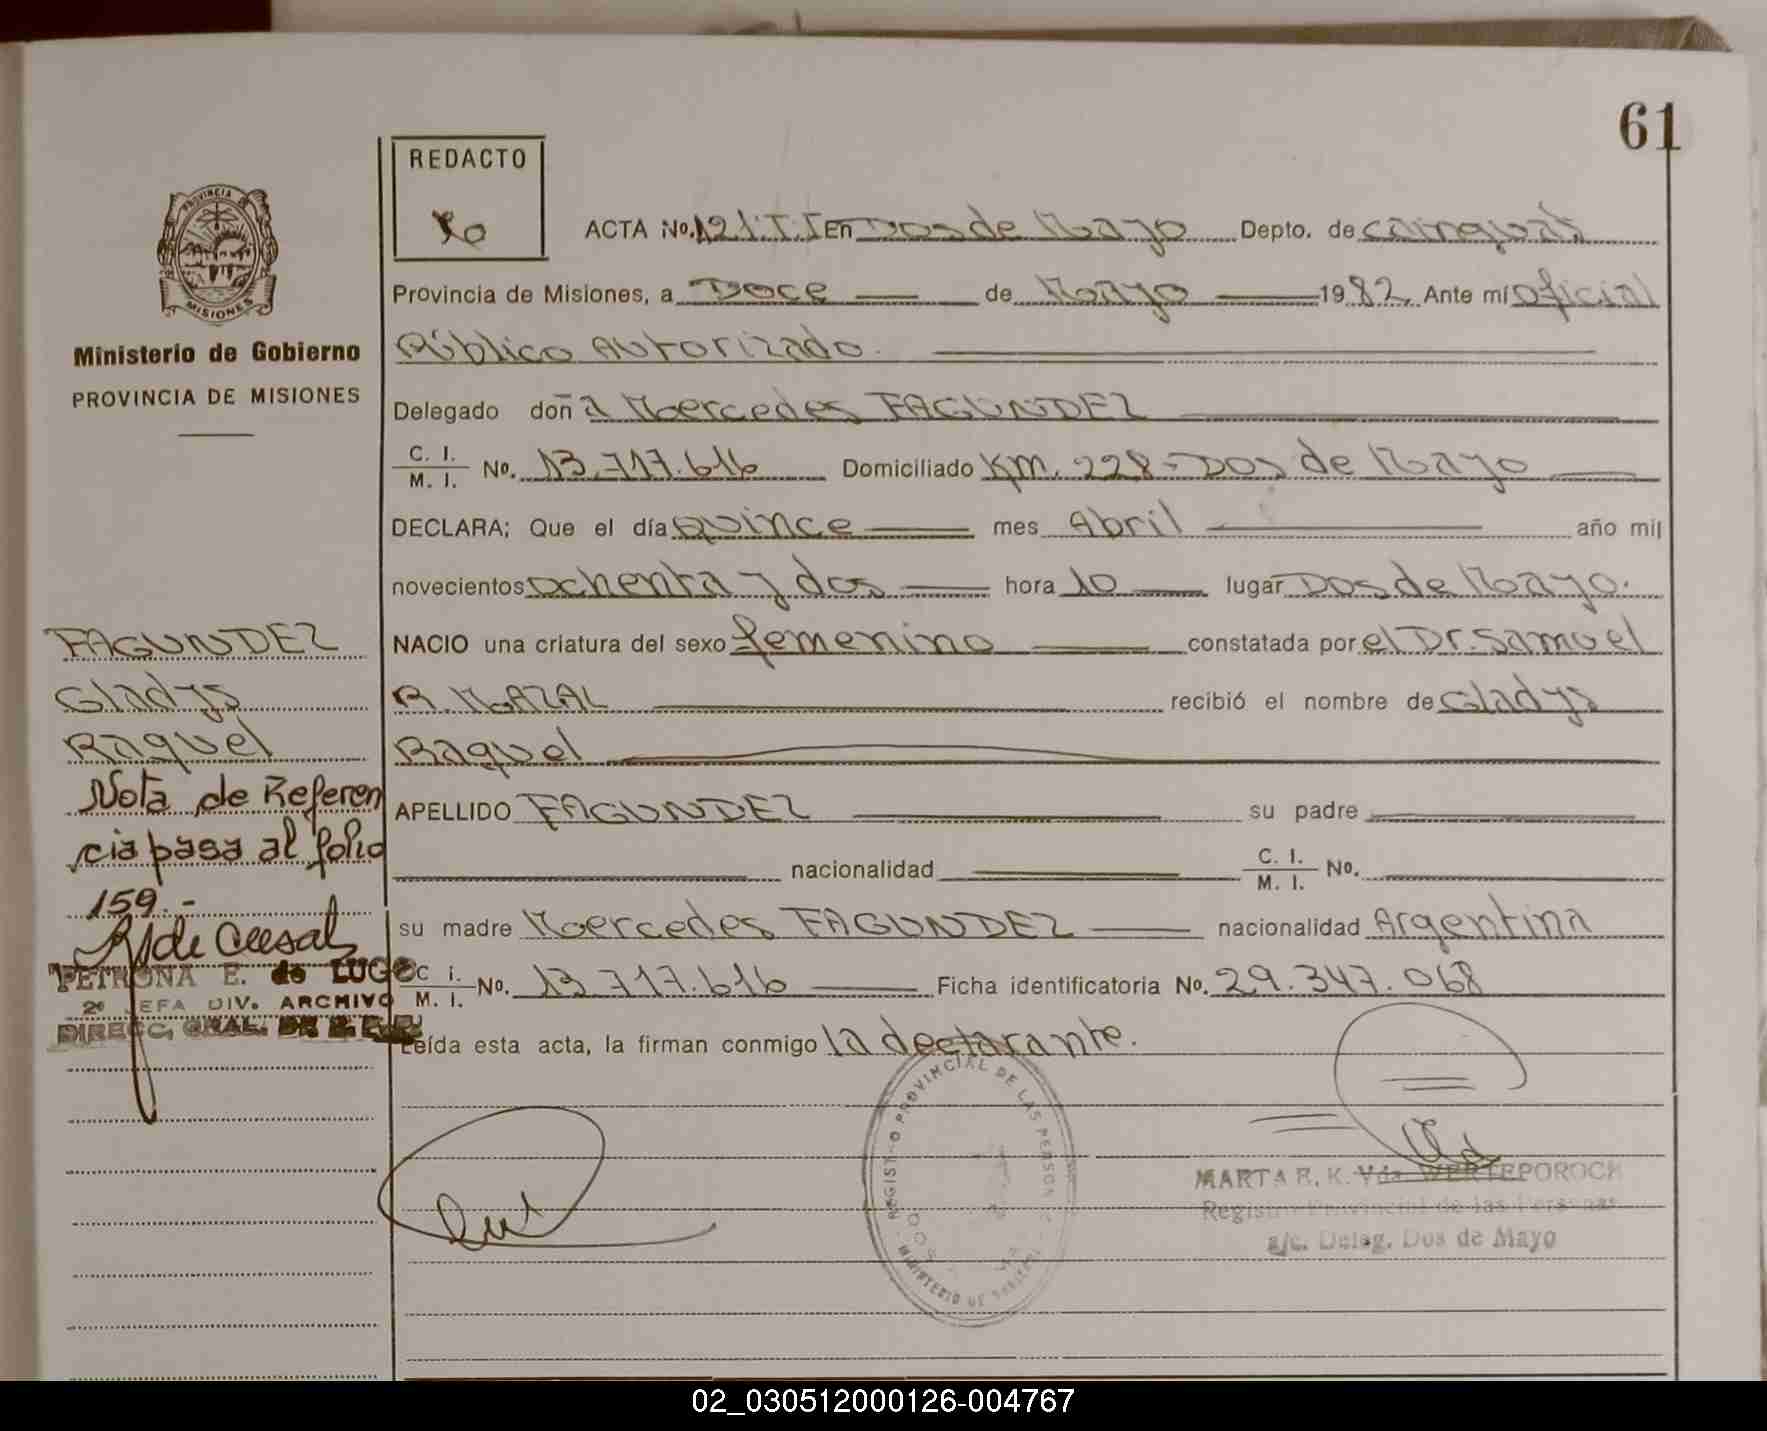 61
REDACTO
ACTA No. 121.T.I En Dos de Mayo Depto. de Cainguás
Provincia de Misiones, a Doce de Mayo 1982. Ante mí Oficial
Público Autorizado.
Delegado doña Mercedes FAGUNDEZ
C. I. / M. I. No. 13.717.616 Domiciliado Km. 228 - Dos de Mayo
DECLARA; Que el día Quince mes Abril año mil
novecientos Ochenta y dos hora 10 lugar Dos de Mayo.
NACIO una criatura del sexo femenino constatada por el Dr. Samuel
R. MAZAL recibió el nombre de Gladys
Raquel
APELLIDO FAGUNDEZ su padre
nacionalidad C. I. / M. I. No.
su madre Mercedes FAGUNDEZ nacionalidad Argentina
C. i. / M. I. No. 13.717.616 Ficha identificatoria No. 29.347.068
Leída esta acta, la firman conmigo la declarante.
PROVINCIA DE
MISIONES
Ministerio de Gobierno
PROVINCIA DE MISIONES
FAGUNDEZ
Gladys
Raquel
Nota de Referen
cia pasa al folio
159.-
PETRONA E. de LUGO
2º JEFA DIV. ARCHIVO
DIRECC. GRAL. DE R. P. P.
REGISTRO PROVINCIAL DE LAS PERSONAS
MINISTERIO DE GOBIERNO
MARTA E. K. Vda. WERTEPOROCH
Registro Provincial de las Personas
a/c. Deleg. Dos de Mayo
02_030512000126-004767